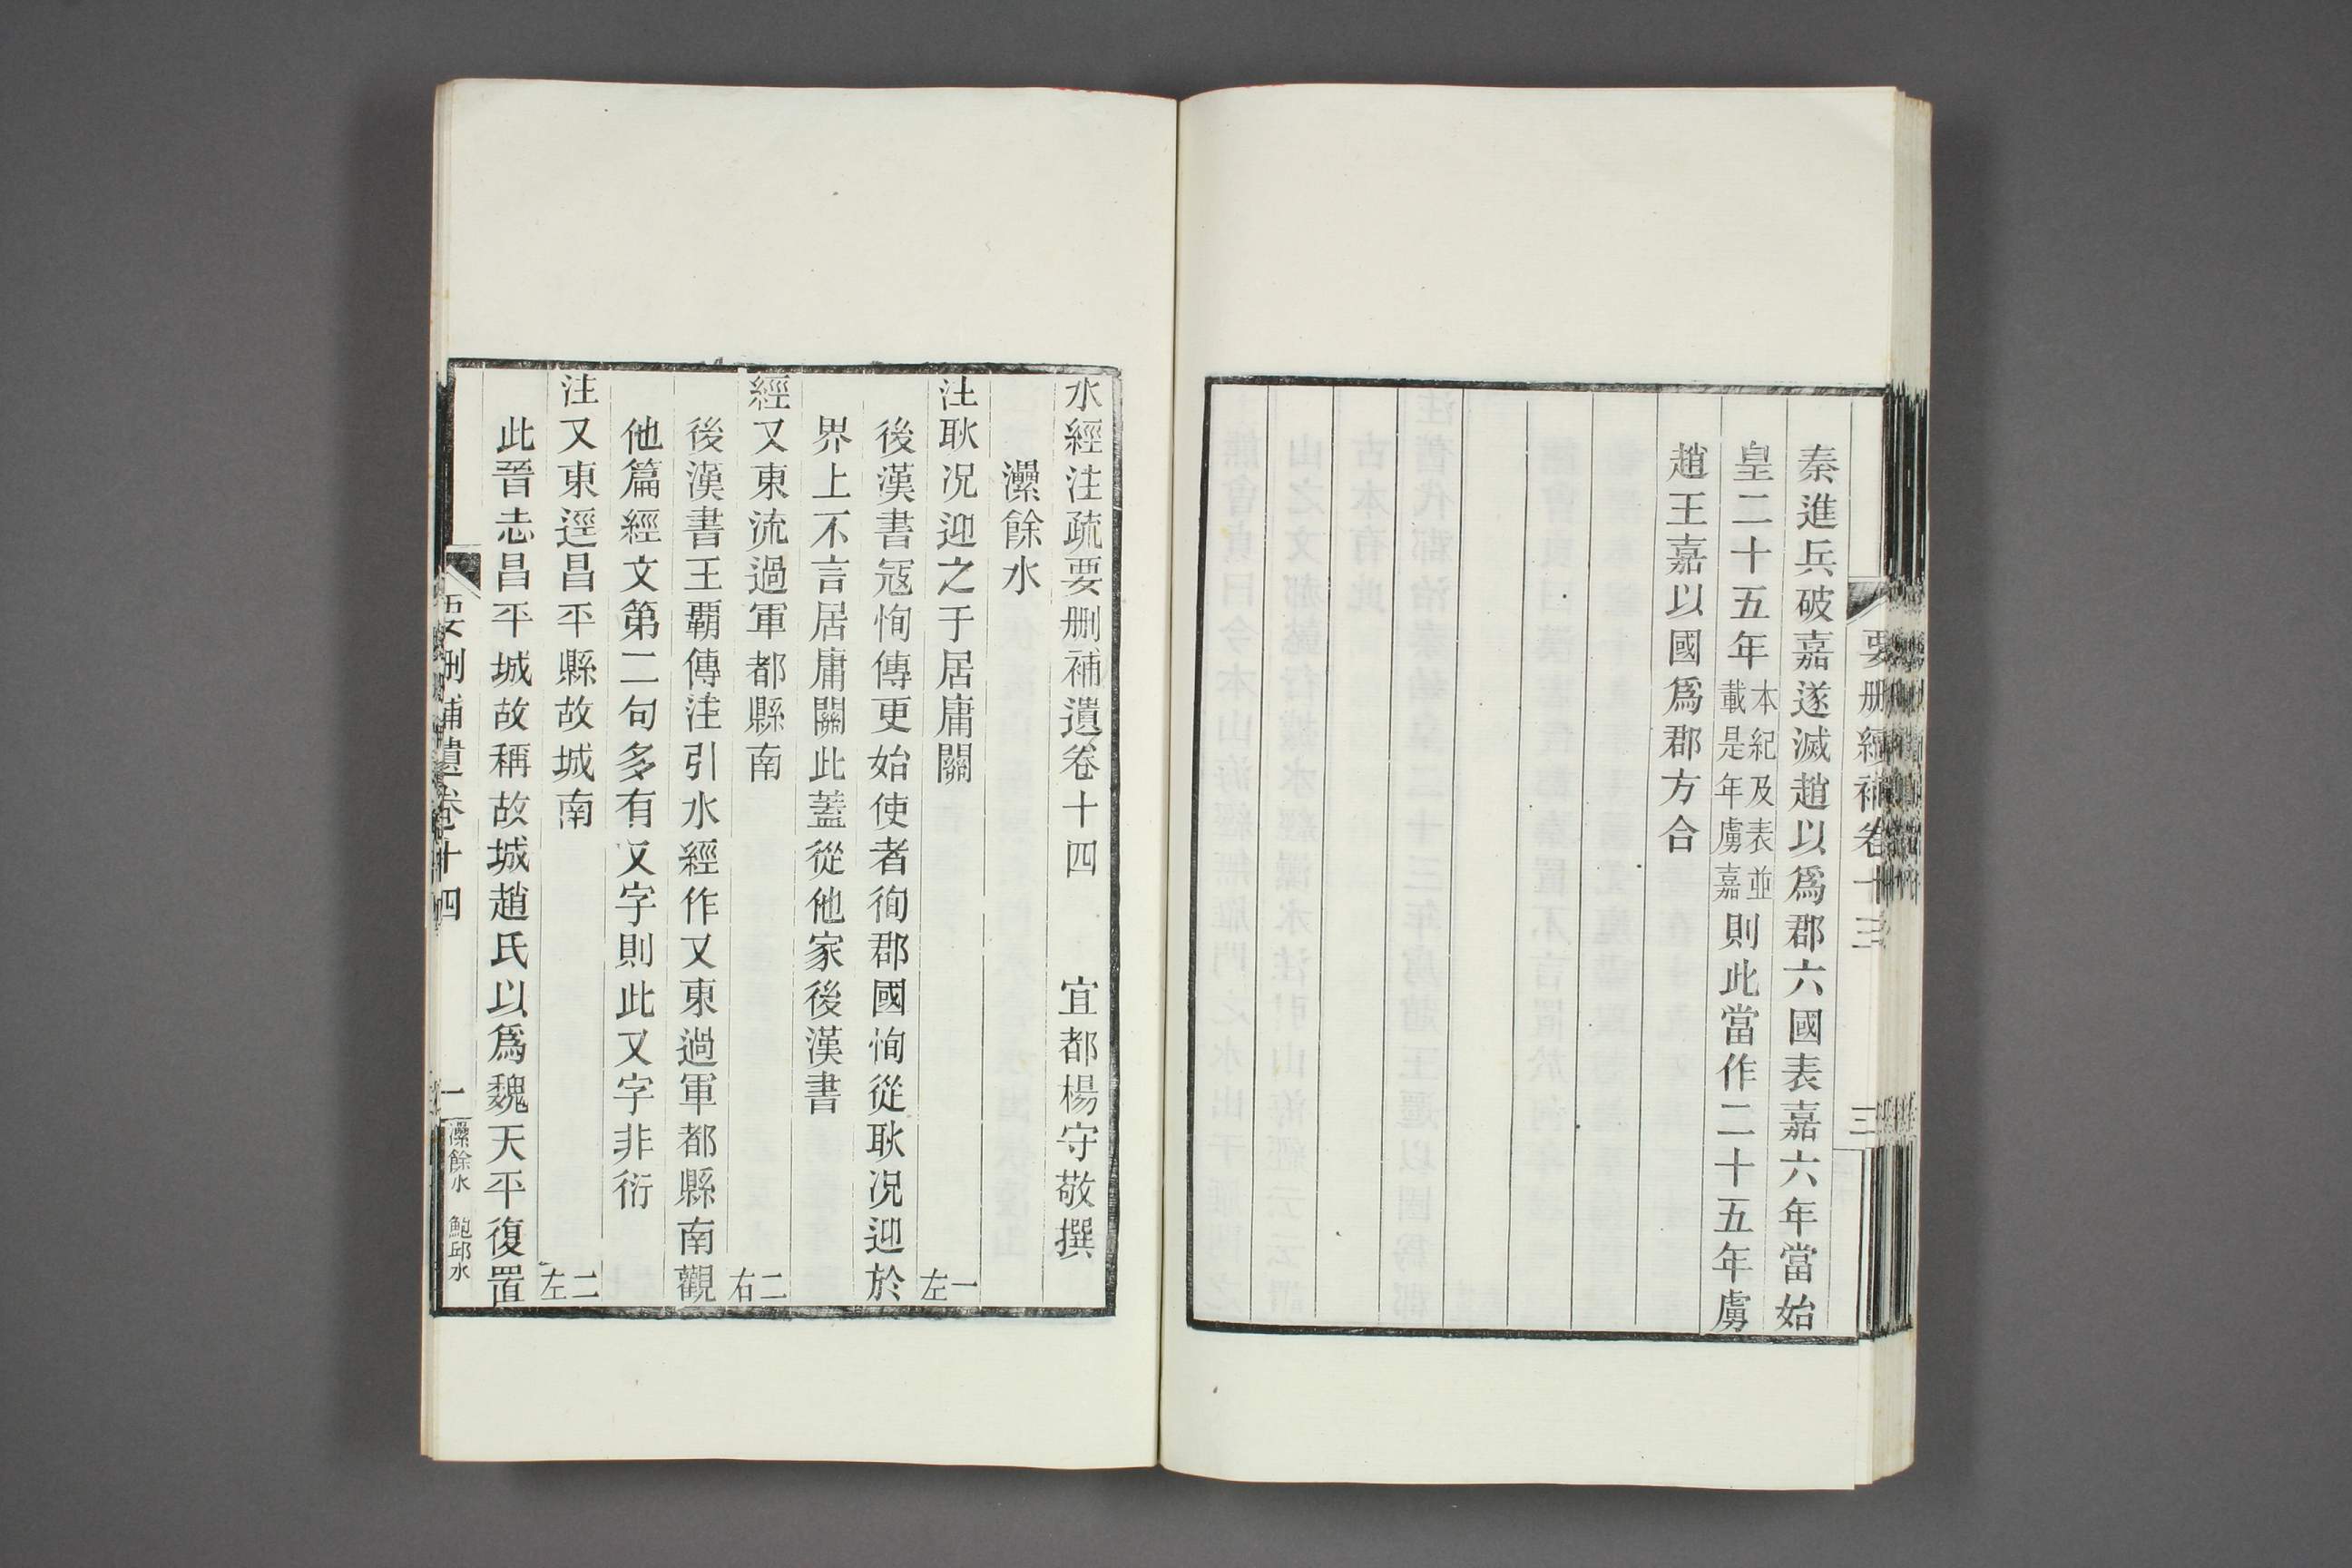 秦進兵破嘉遂滅趙以爲郡六國表嘉六年當始
皇二十五年本紀及表並載是年虜嘉則此當作二十五年虜
趙王嘉以國爲郡方合
要删續補卷十三
三
水經注疏要删補遺卷十四 宜都楊守敬撰
灅餘水
注耿况迎之于居庸關 一左
後漢書寇恂傳更始使者徇郡國恂從耿况迎於
界上不言居庸關此蓋從他家後漢書
經又東流過軍都縣南 二右
後漢書王霸傳注引水經作又東過軍都縣南觀
他篇經文第二句多有又字則此又字非衍
注又東逕昌平縣故城南 二左
此晉志昌平城故稱故城趙氏以爲魏天平復置
要删補遺卷十四
一
灅餘水 鮑邱水